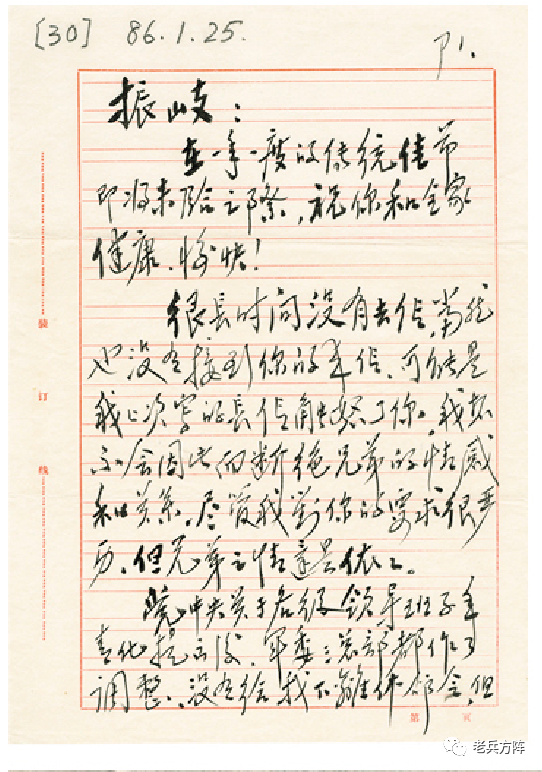 [30] 86.1.25.
P1.
振岐：
在一年一度的传统佳节
即将来临之际，祝你和全家
健康、愉快！
很长时间没有去信，当然
也没有接到你的来信，可能是
我上次写的长信触怒了你。我想
不会因此而断绝兄弟的情感
和关系，尽管我对你的要求很严
厉，但兄弟之情还是依依。
中央关于各级领导班子年
青化提出后，军委三总部都作了
调整，没有给我下离休命令，但
装
订
线
第 页
老兵方阵